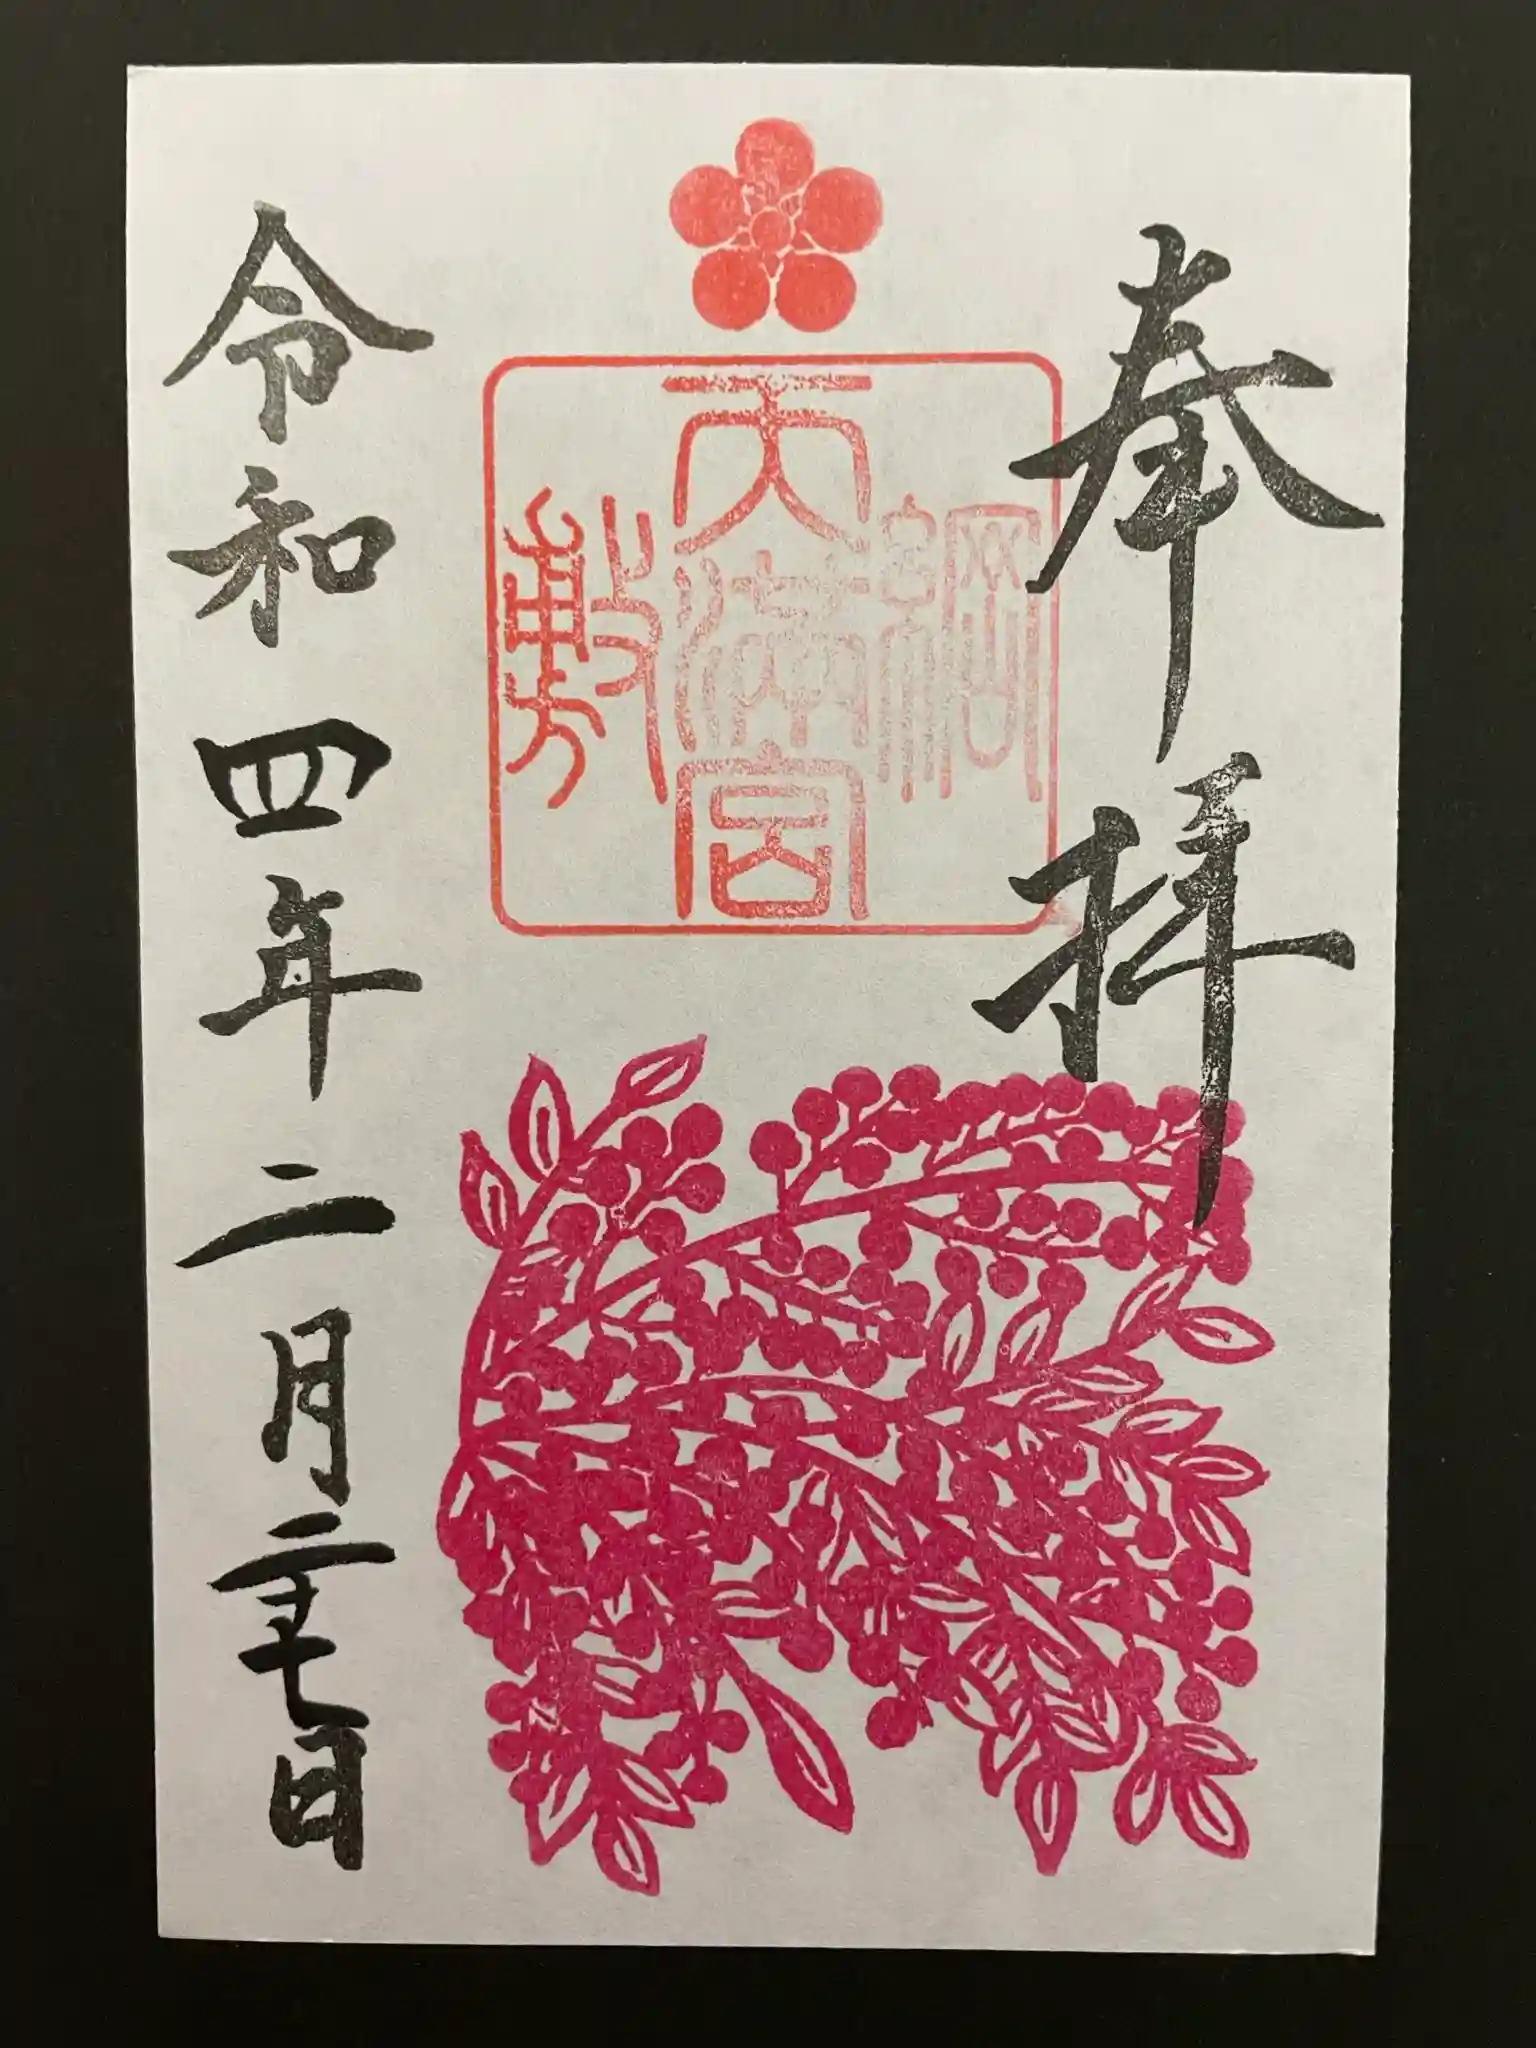 奉拝
綱敷
天満宮
令和四年二月二十七日